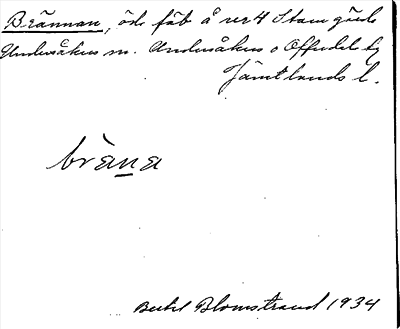 Brännan, öde fäb å nr 4 Stamgärde
Undersåkers sn. Undersåkers o Offerdals tg
Jämtlands l.
bràna
Bertil Blomstrand 1934